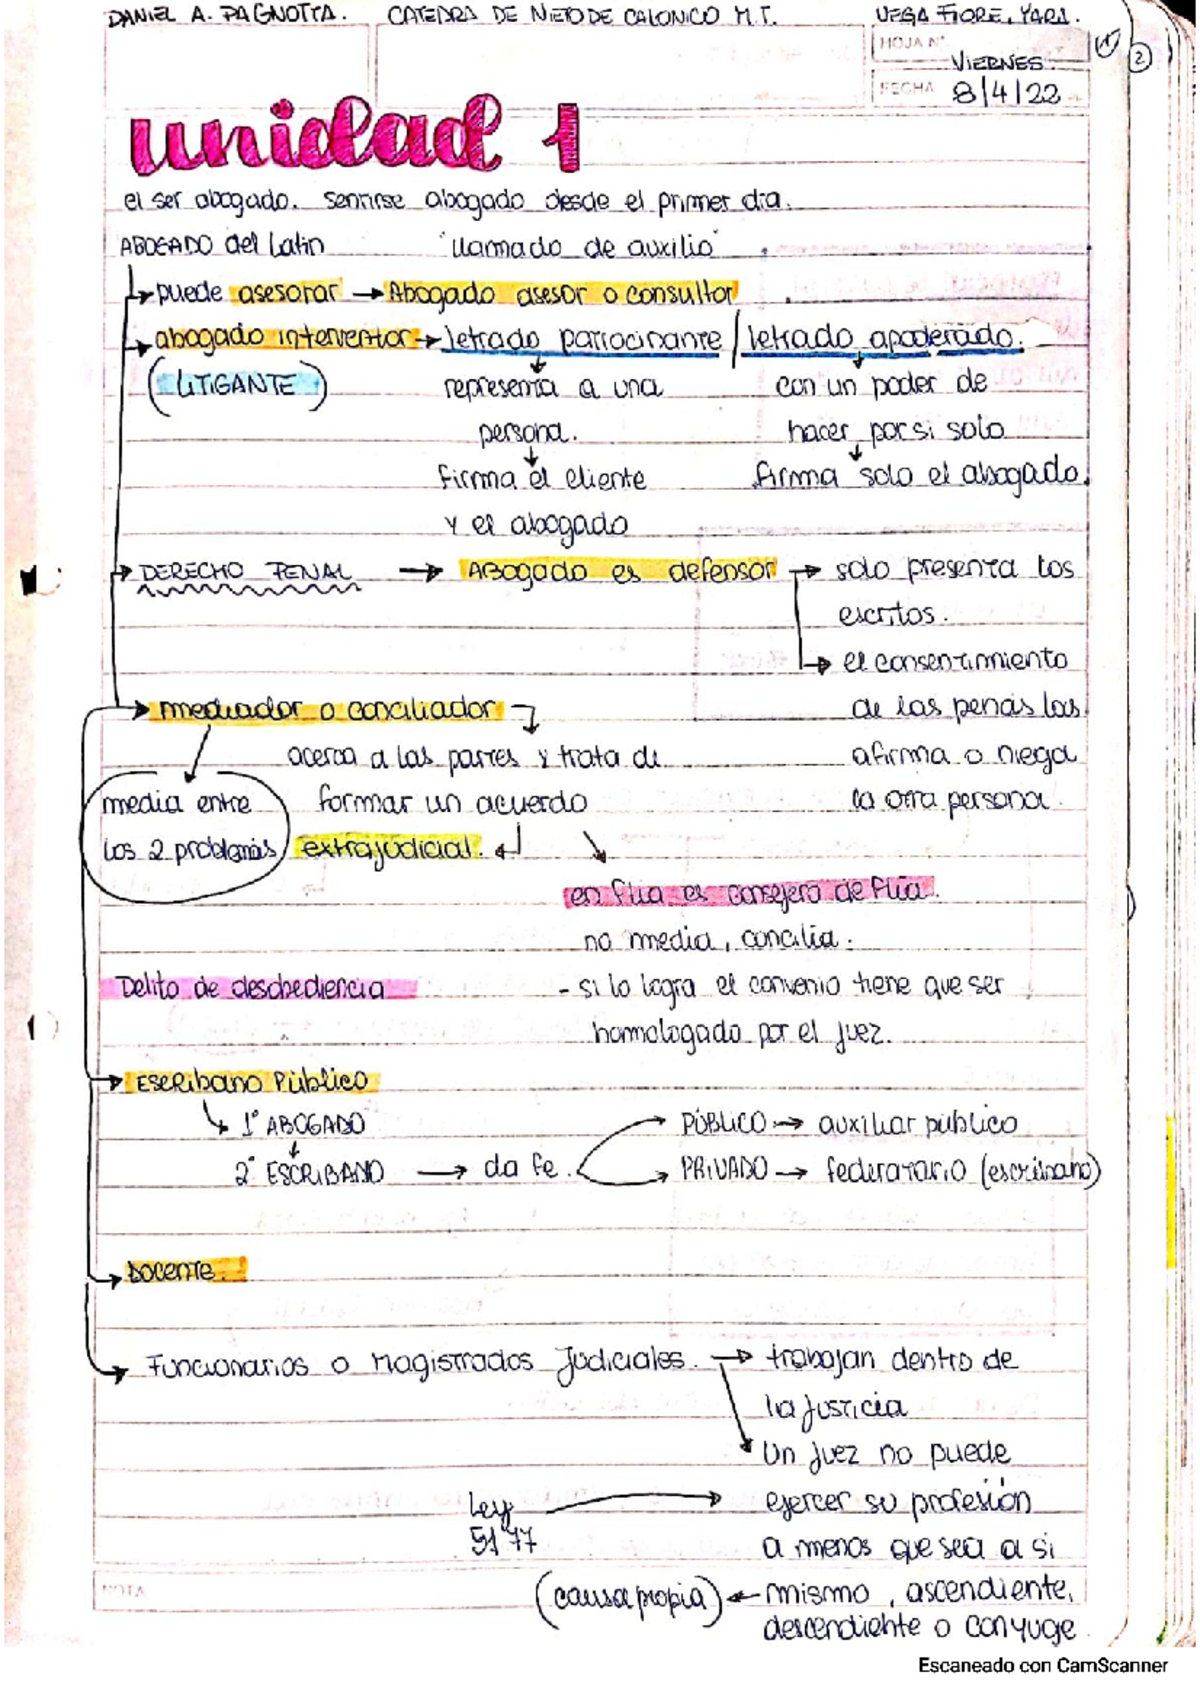 DANIEL A. PAGNOTTA. CATEDRA DE NIETO DE CALONICO M.T. VEGA FIORE, YARA.
HOJA N° 1 2
VIERNES
FECHA 8/4/22
unidad 1
el ser abogado. sentirse abogado desde el primer dia.
ABOGADO del Latin "llamado de auxilio".
→ puede asesorar → Abogado asesor o consultor
→ abogado interventor → letrado patrocinante / letrado apoderado.
(LITIGANTE) representa a una con un poder de
persona. hacer por si solo
firma el cliente firma solo el abogado.
y el abogado
→ DERECHO PENAL → Abogado es defensor → solo presenta los
escritos.
→ el consentimiento
→ mediador o conciliador de las penas las
acerca a las partes y trata de afirma o niega
media entre formar un acuerdo la otra persona.
los 2 problemas extrajudicial.
en flia es consejero de flia.
no media, concilia.
Delito de desobediencia - si lo logra el convenio tiene que ser
homologado por el juez.
→ Escribano Público
1° ABOGADO PÚBLICO → auxiliar público
2° ESCRIBANO → da fe. PRIVADO → federatario (escribano)
→ Docente.
→ Funcionarios o Magistrados Judiciales. → trabajan dentro de
la justicia
un juez no puede
Ley → ejercer su profesión
5177 a menos que sea a si
NOTA (causa propia) ← mismo, ascendiente,
descendiente o conyuge
Escaneado con CamScanner